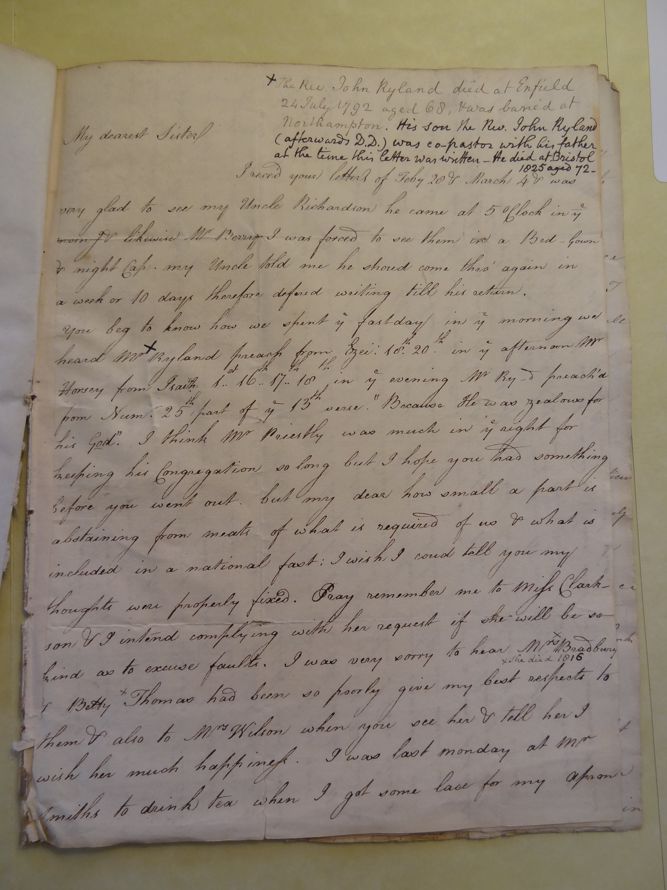 + The Rev. John Ryland died at Enfield
24 July 1792 aged 68, & was buried at
Northampton. His son the Rev. John Ryland
(afterwards D.D.) was co-pastor with his father
at the time this letter was written - He died at Bristol
1825 aged 72 -
My dearest Sister
I recvd your letters of Feby 28 & March 4 & was
very glad to see my Uncle Richardson he came at 5 oClock in ye
& likewise Mr Berry I was forced to see them in a Bed-Gown
& night Cap. my Uncle told me he shoud come thro' again in
a week or 10 days therefore defered writing till his return.
you beg to know how we spent ye fastday in ye morning we
heard Mr + Ryland preach from Ezei: 18th 20th in ye afternoon Mr
Horsery from Isaith 1st 16th 17th 18th, in ye evening Mr Ry-d preach'd
from Num: 25th part of ye 13th verse. "Because He was zealous for
his God". I think Mr Priestly was much in ye right for
keeping his Congregation so long but I hope you had something
before you went out. but my dear how small a part is
abstaining from meats of what is required of us & what is
included in a national fast: I wish I coud tell you my
thoughts were properly fixed. Pray remember me to Miss Clark-
son & I intend complying with her request if she will be so
kind as to excuse faults. I was very sorry to hear Mrs x Bradbury
x She died 1816
& Betty + Thomas had been so poorly give my best respects to
them & also to Mrs Wilson when you see her & tell her I
wish her much happiness. I was last monday at Mr
Smiths to drink tea when I got some lace for my apron